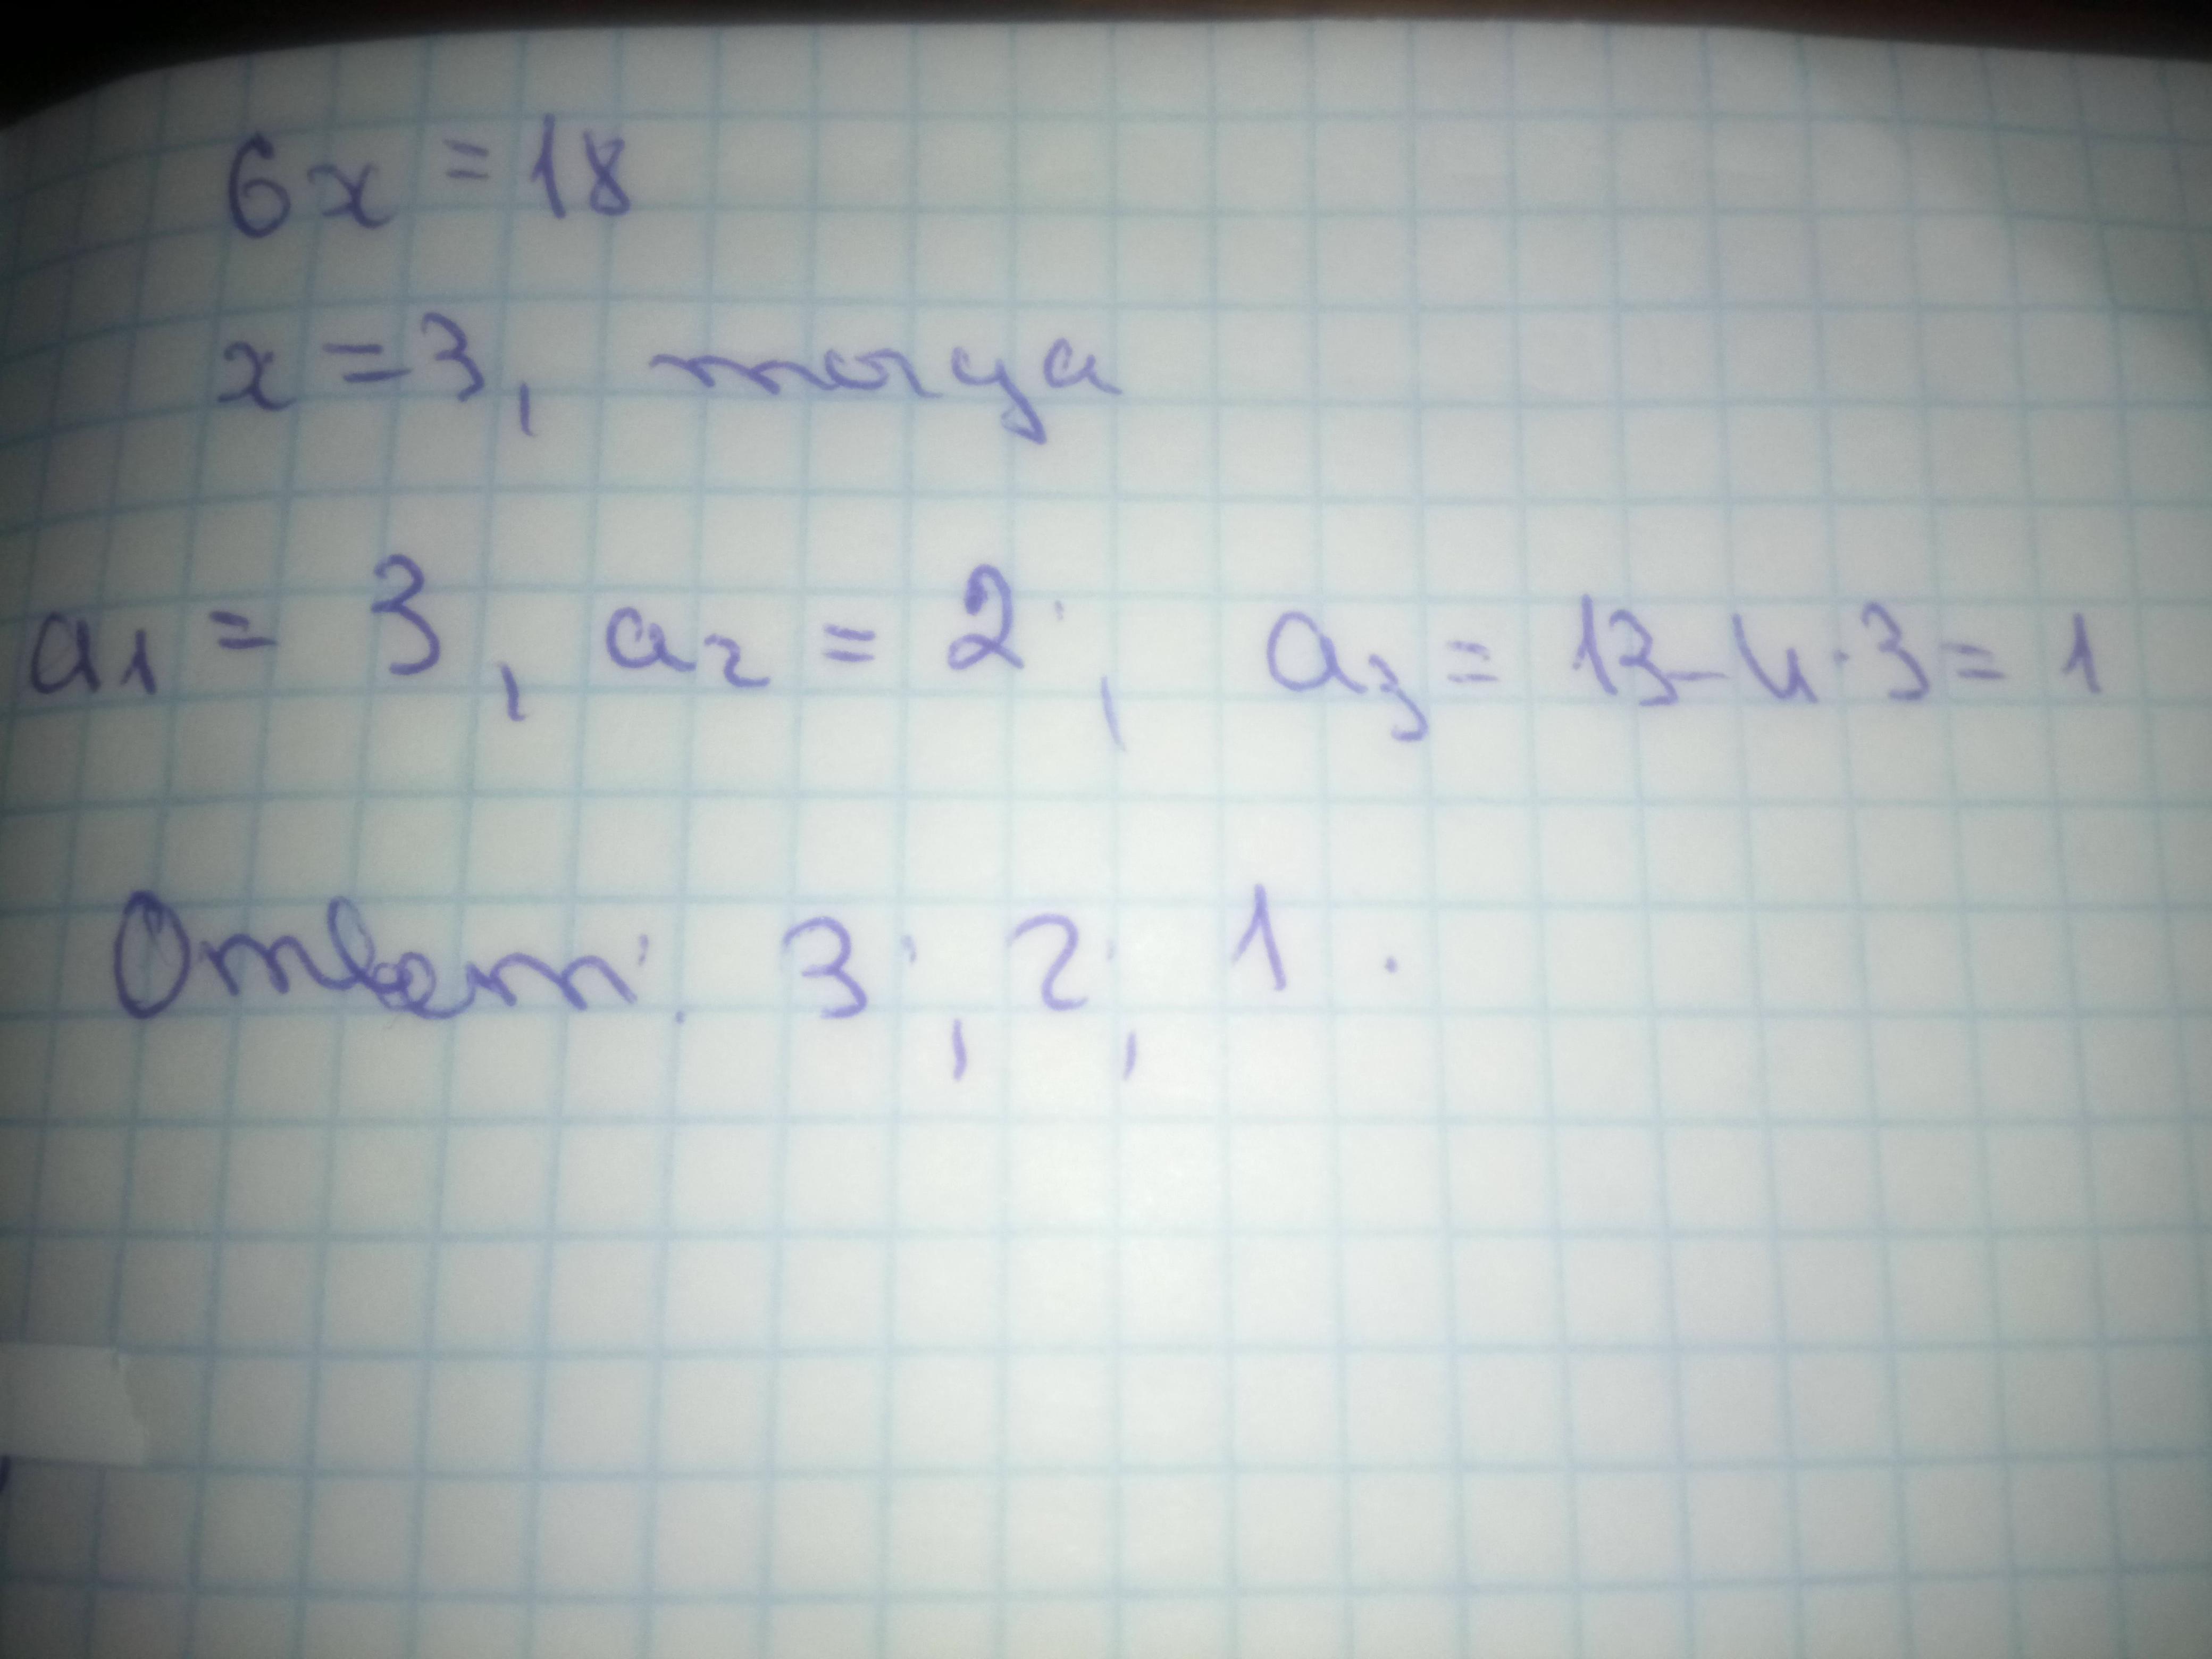 6x = 18
x = 3, тогда
a₁ = 3, a₂ = 2, a₃ = 13 - 4 · 3 = 1
Ответ: 3; 2; 1.